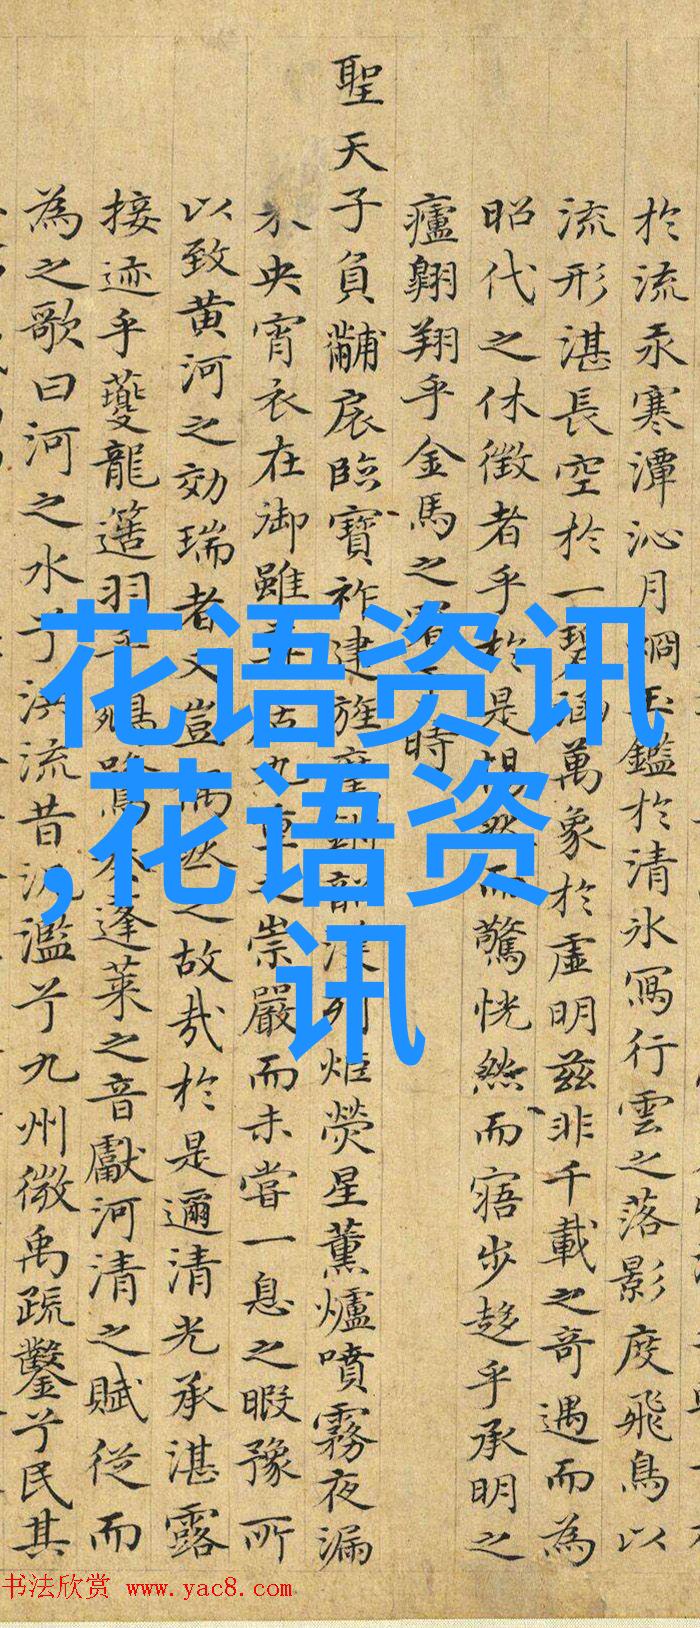 於流汞寒潭沁月烱玉鑑於清氷寫行雲之落影度飛鳥以
流形湛長空於一碧涵萬象於虛明茲非千載之奇遇而為
昭代之休徵者乎於是惕然而驚恍然而寤步趍乎承明之
廬翺翔乎金馬之署于時
聖天子負黼扆臨寶祚建旌列炬熒星薰爐噴霧夜漏
未央宵衣在御雖居九重之崇嚴而未嘗一息之暇豫所
以致黄河之効瑞者夫豈偶然之故哉於是邇清光承湛露
接迹乎夔龍簉羽乎鵷鷺奏蓬萊之音獻河清之賦從而
為之歌曰河之水兮洪流昔泛濫兮九州微禹疏鑿兮民其
花语资讯
,花语资
讯
书法欣赏 www.yac8.com